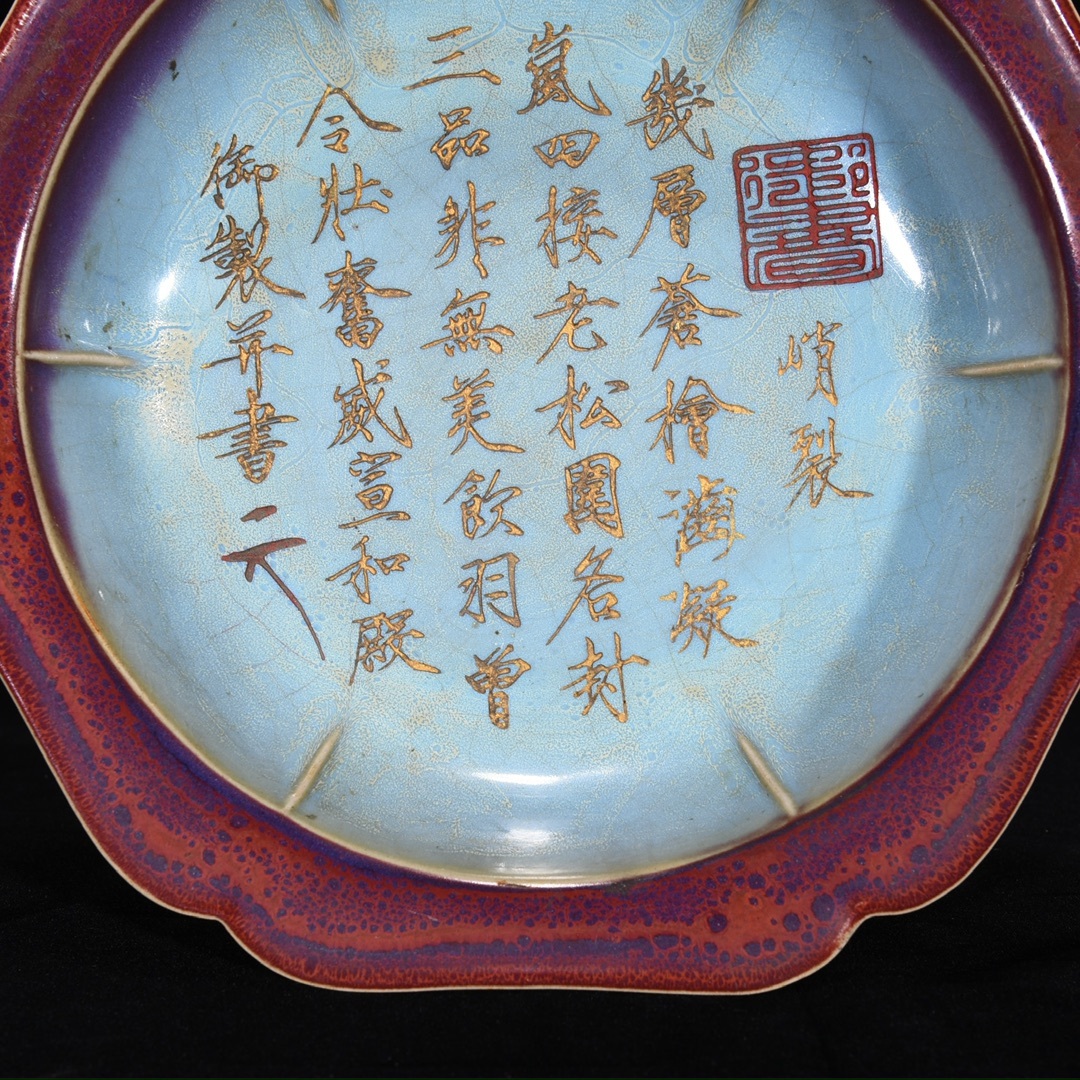 御書
峭裂
幾層蒼檜凝
嵐四接老松圍名封
三品非無美飲羽曾
令壯奮威宣和殿
御製并書